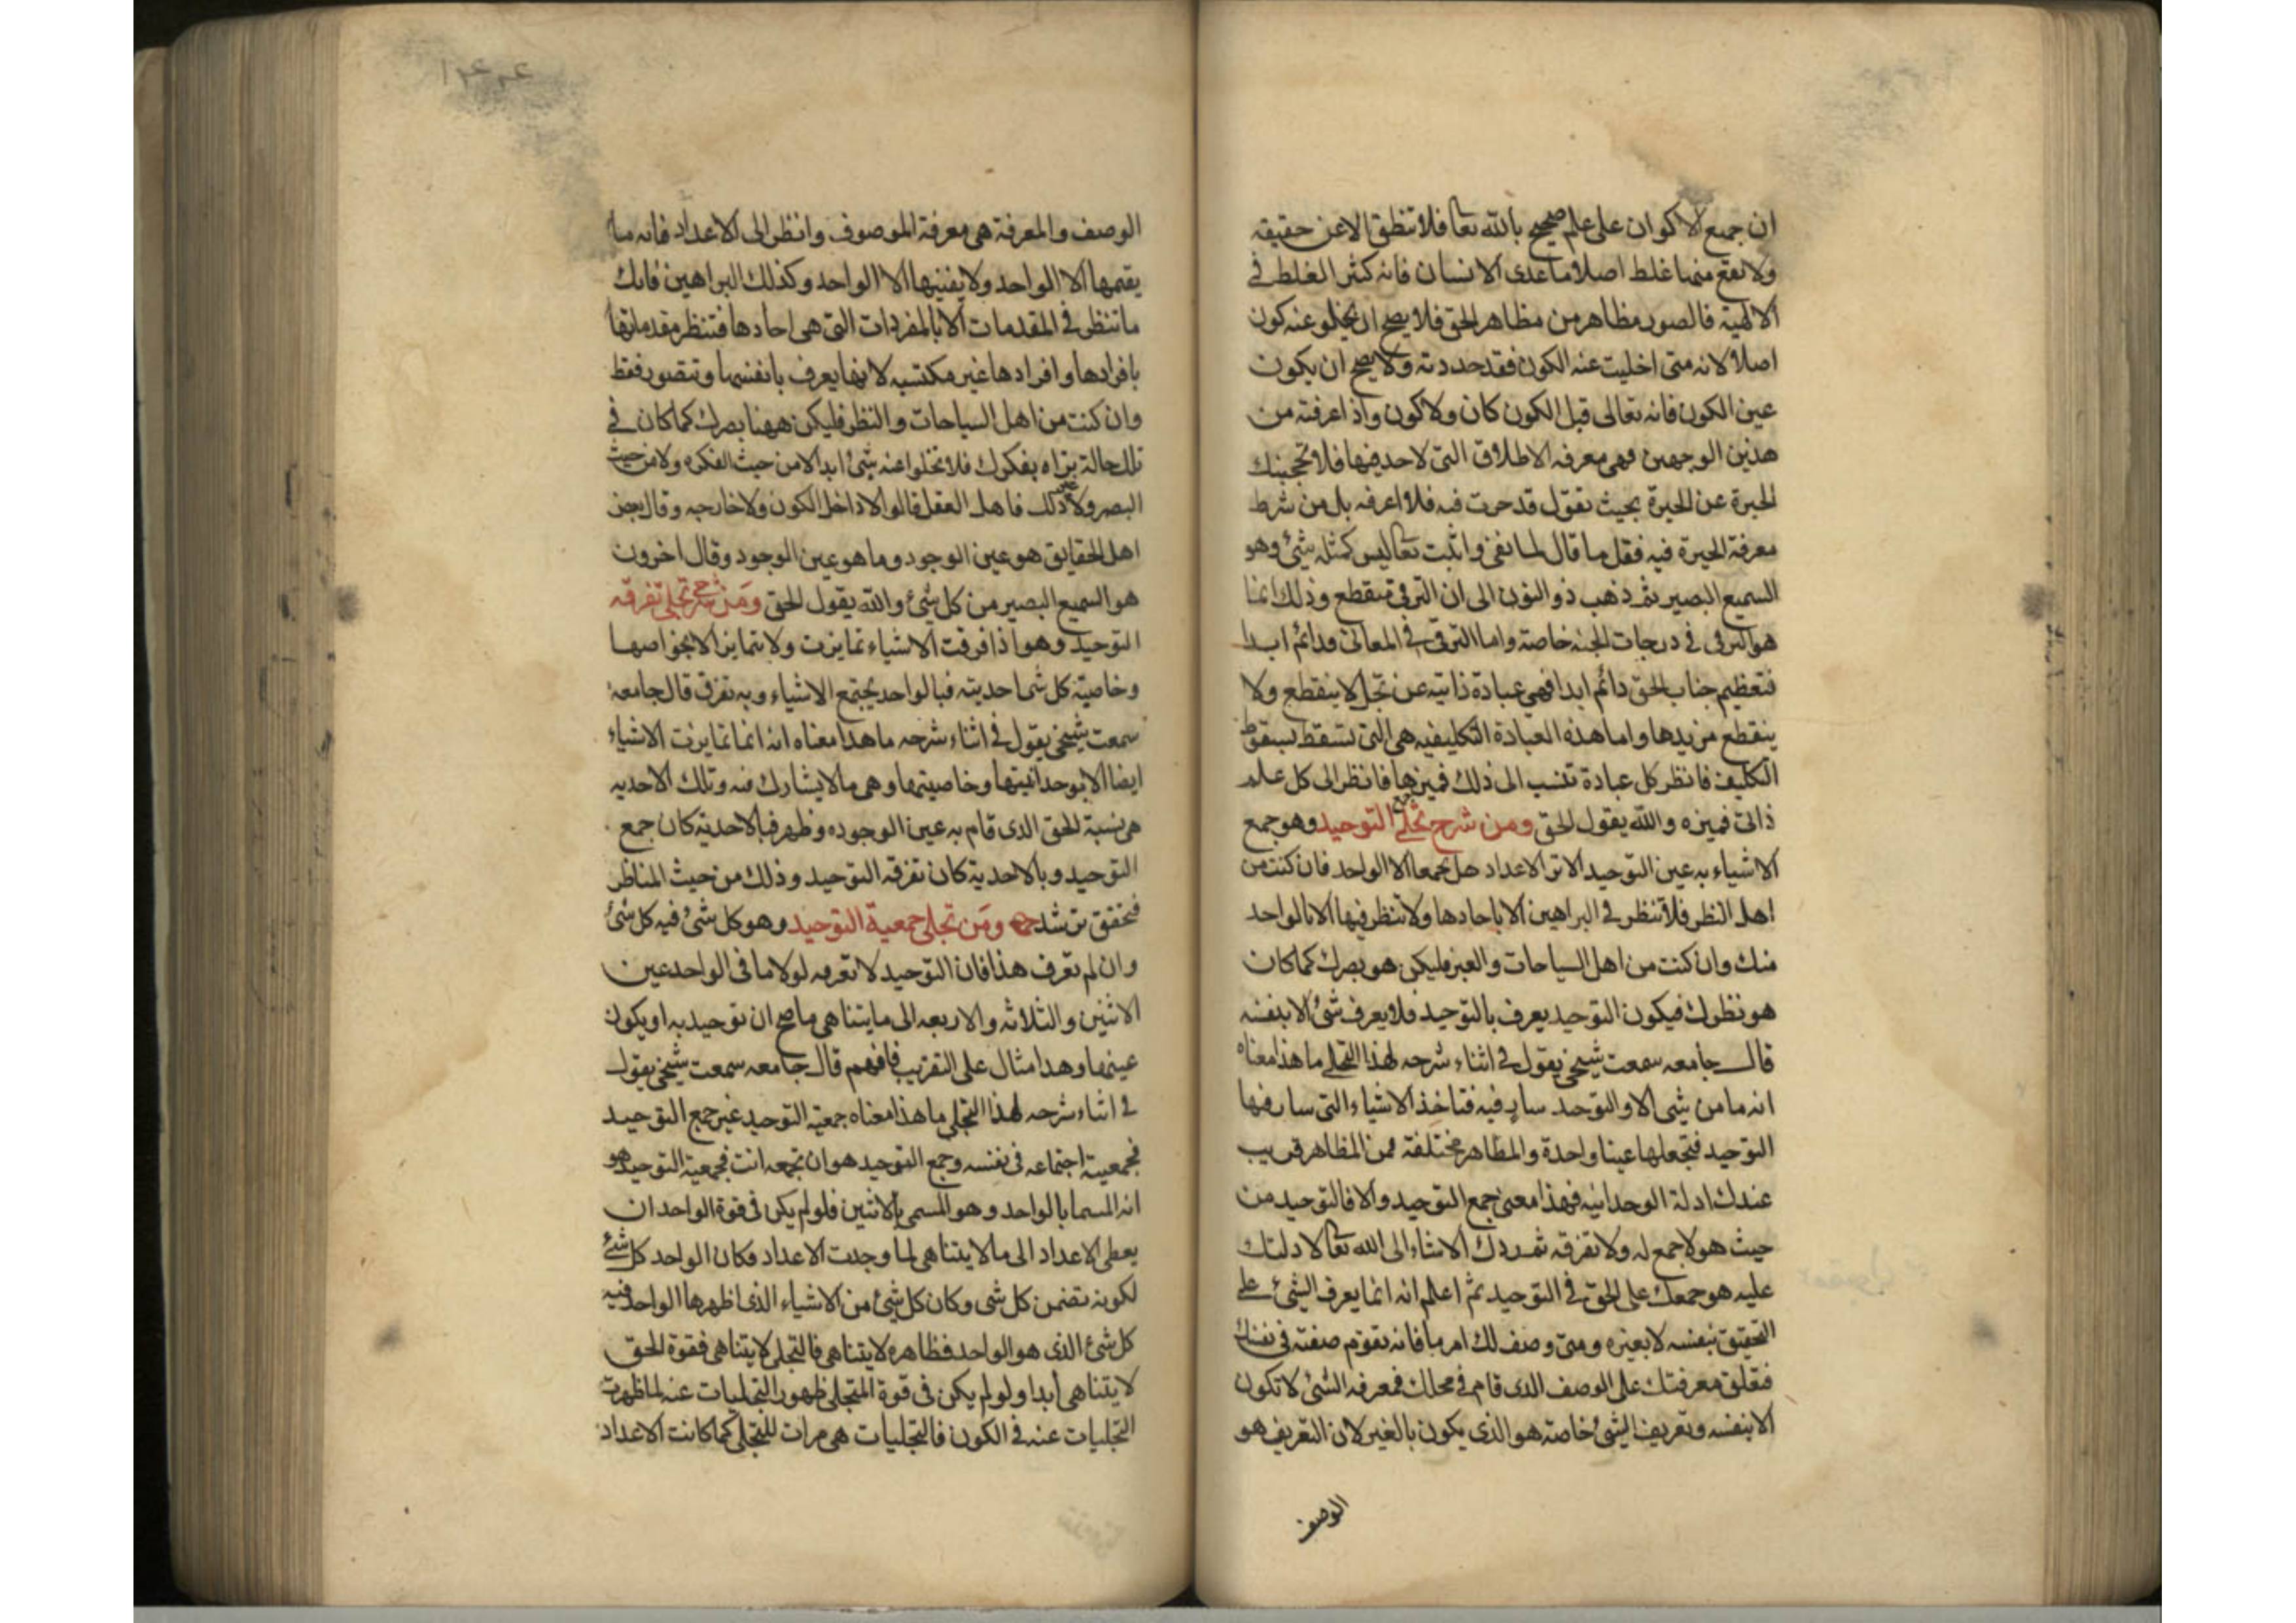 ان جميع الاكوان على علم صحيح بالله تعا فلا تنطق الا عن حقيقة
ولا يقع منها غلط اصلا ما عدى الانسان فانه كثير الغلط في
الالهية فالصور مظاهر من مظاهر الحق فلا يصح ان يخلو عنه كون
اصلا لانه متى اخليت عنه الكون فقد حددته ولا يصح ان يكون
عين الكون فانه تعالى قبل الكون كان ولا كون واذا عرفته من
هذين الوجهين فهى معرفه الاطلاق التى لا حد فيها فلا تحجبنك
الحيرة عن الحيرة بحيث تقول قد حرت فيه فلا اعرفه بل من شرط
معرفة الحيرة فيه فقل ما قال لما نفى واثبت تعا ليس كمثله شئ وهو
السميع البصير ثم ذهب ذو النون الى ان الترقى منقطع وذلك انما
هو الترقى فى درجات الجنه خاصة واما الترقى فى المعانى فدائم ابدا
فتعظيم جناب الحق دائم ابدا فهي عبادة ذاتيه عن تجل لا ينقطع ولا
ينقطع مزيدها واما هذه العبادة التكليفيه هى التى تسقط بسقوط
التكليف فانظر كل عبادة تنسب الى ذلك فميزها فانظر الى كل علم
ذاتى فميزه والله يقول الحق ومن شرح تجلى جمع التوحيد وهو جمع
الاشياء به عين التوحيد الا تر الاعداد هل يجمعها الا الواحد فان كنت من
اهل النظر فلا تنظر في البراهين الا باحادها ولا تنظر فيها الا بالواحد
منك وان كنت من اهل السياحات والعبر فليكن هو بصرك كما كان
هو نظرك فيكون التوحيد يعرف بالتوحيد فلا يعرف شئ الا بنفسه
قال جامعه سمعت شيخى يقول في اثناء شرحه لهذا التجلى ما هذا معناه
انه ما من شى الا والتوحيد سار فيه فتاخذ الاشياء التى سار فيها
التوحيد فتجعلها عينا واحدة والمظاهر مختلفة فمن المظاهر قريب
عندك ادلة الوحدانيه فهذا معنى جمع التوحيد والا فالتوحيد من
حيث هو لا جمع له ولا تفرقه ثم ردك الاشياء الى الله تعا لا دلتك
عليه هو جمعك على الحق في التوحيد ثم اعلم انه انما يعرف الشئ على
التحقيق بنفسه لا بغيره ومتى وصف لك امر ما فانه تقوم صفته فى نفسك
فتعلق معرفتك على الوصف الذى قام في محلك فمعرفه الشئ لا تكون
الا بنفسه وتعريف الشئ خاصة هو الذى يكون بالغير لان التعريف هو
الوصف
الوصف والمعرفة هى معرفة الموصوف وانظر الى الاعداد فانه ما
يقيمها الا الواحد ولا يفنيها الا الواحد وكذلك البراهين فانك
ما تنظر في المقدمات الا بالمفردات التى هى احادها فتنظر مقدماتها
بافرادها وافرادها غير مكتسبه لانها يعرف بانفسها وتتصور فقط
وان كنت من اهل السياحات والنظر فليكن ههنا بصرك كما كان في
تلك حالة تراه بفكرك فلا تخلوا عنه شئ ابدا لا من حيث الفكره ولا من حيث
البصر ولا غير ذلك فاهل العقل قالوا لا داخل الكون ولا خارجه وقال بعض
اهل الحقايق هو عين الوجود وما هو عين الوجود وقال اخرون
هو السميع البصير من كل شئ والله يقول الحق ومن شرح تجلى تفرقه
التوحيد وهو اذا فرقت الاشياء تمايزت ولا تتمايز الا بخواصها
وخاصية كل شى احديته فبالواحد يجتمع الاشياء وبه تفرق قال جامعه
سمعت شيخى يقول في اثناء شرحه ما هذا معناه انه انما تمايزت الاشياء
ايضا الا بوحدانيتها وخاصيتها وهى ما لا يشارك فيه وتلك الاحديه
هى نسبة الحق الذى قام به عين الوجود وظهر فبالاحدية كان جمع
التوحيد وبالاحدية كان تفرقه التوحيد وذلك من حيث المناظر
فتحقق ترشد ومن تجلى جمعية التوحيد وهو كل شئ فيه كل شئ
وان لم تعرف هذا فان التوحيد لا تعرفه لولا ما فى الواحد عين
الاثنين والثلاثه والاربعه الى ما يتناهى ما صح ان توحيد به او يكون
عينها وهذا مثال على التقريب فافهم قال جامعه سمعت شيخى يقول
في اثناء شرحه لهذا التجلى ما هذا معناه جمعية التوحيد غير جمع التوحيد
فجمعيته اجتماعه فى نفسه وجمع التوحيد هو ان تجمعه انت فجمعية التوحيد هو
انه المسما بالواحد وهو المسمى بالاثنين فلو لم يكن فى قوة الواحد ان
يعطى الاعداد الى ما لا يتناهى لما وجدت الاعداد فكان الواحد كل شئ
لكونه تضمن كل شى وكان كل شئ من الاشياء الذى اظهرها الواحد فيه
كل شئ الذى هو الواحد فظاهره لا يتناهى فالتجلى لا يتناهى فقوة الحق
لا يتناهى ابدا ولو لم يكن فى قوة المتجلى ظهور التجليات عنه لما ظهرت
التجليات عنه في الكون فالتجليات هى مرات للتجلى كما كانت الاعداد